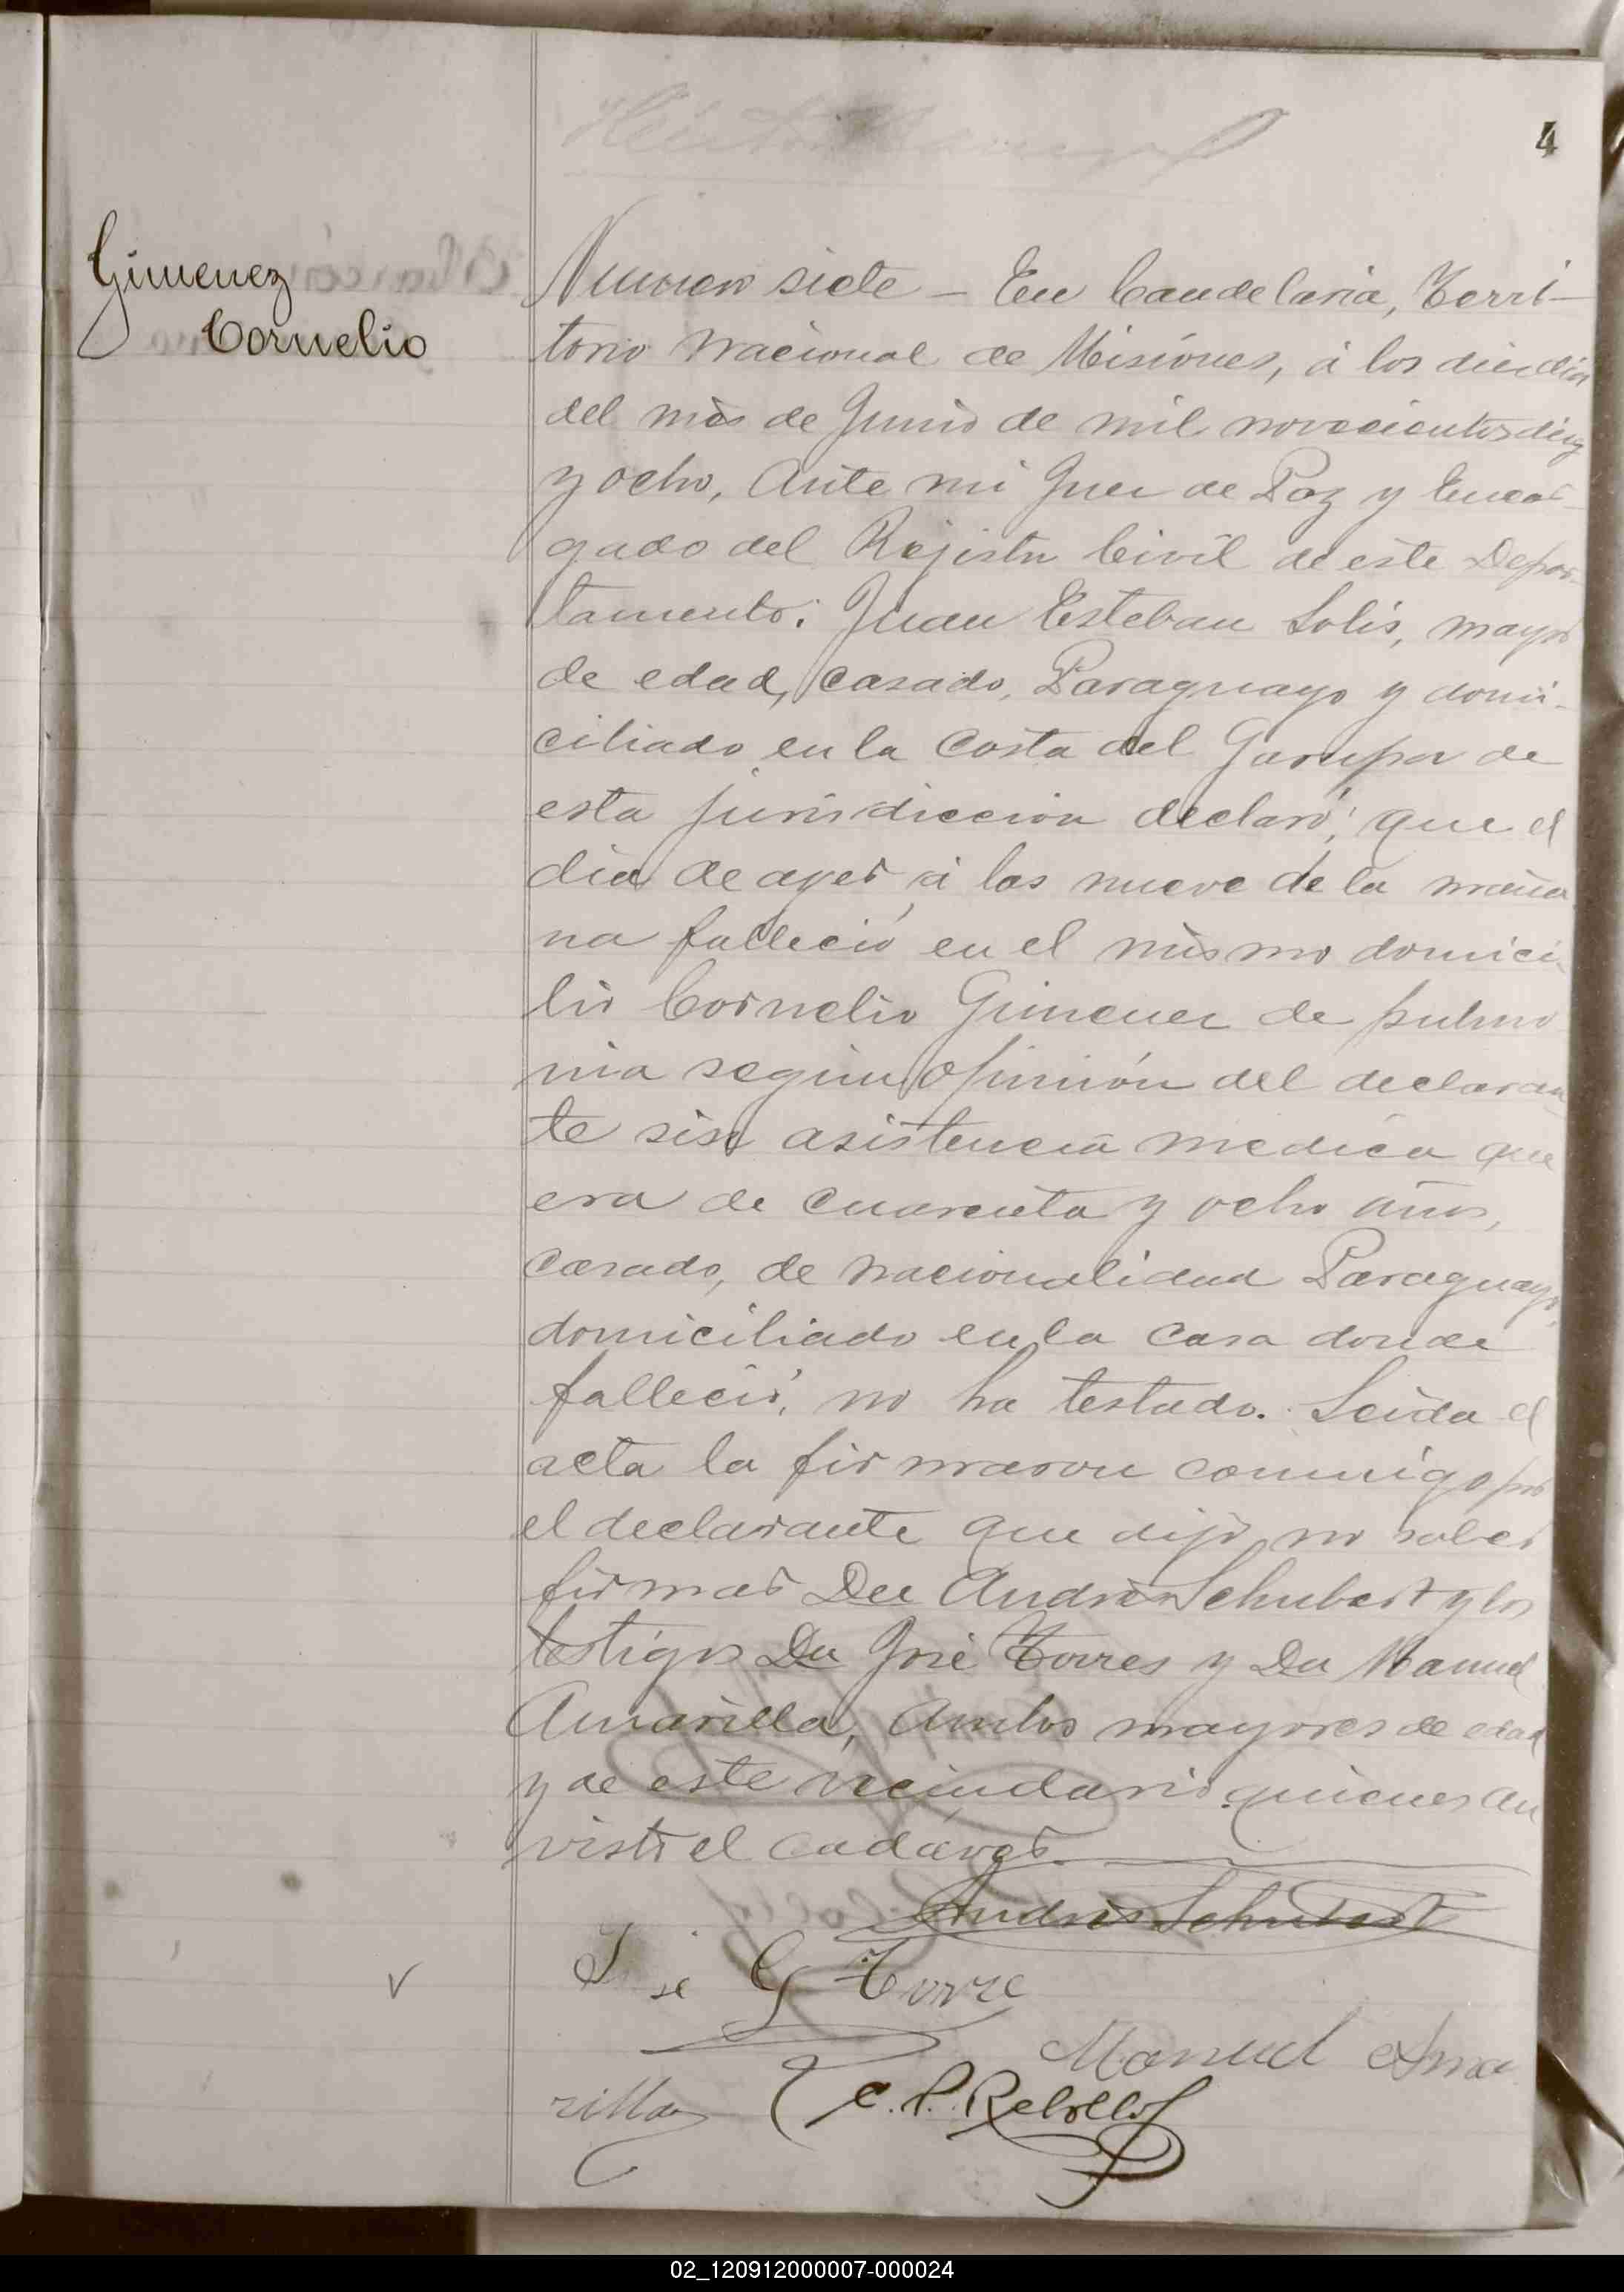 4
Gimenez
Cornelio
Numero siete - En Candelaria, Terri-
torio Nacional de Misiones, á los diez dias
del mes de Junio de mil novecientos diez
y ocho, Ante mi Juez de Paz y Encar-
gado del Rejistro Civil de este Depar-
tamento: Juan Esteban Solis, mayor
de edad, casado, Paraguayo y domi-
ciliado en la Costa del Garupa de
esta jurisdiccion declaró; que el
dia de ayer á las nueve de la maña
na falleció en el mismo domici-
lio Cornelio Gimenez de pulmo
nia según opinión del declaran-
te sin asistencia medica que
era de cuarenta y ocho años,
casado, de nacionalidad Paraguayo,
domiciliado en la casa donde
falleció, no ha testado. Leida el
acta la firmaron conmigo por
el declarante que dijo no saber
firmar Dn Andrés Schubert y los
testigos Dn José Torres y Dn Manuel
Amarilla, ambos mayores de edad
y de este vecindario quienes an
visto el cadáver.
Andrés Schubert
José G Torre
Manuel Ama
rilla
C. P. Rebollo
02_120912000007-000024